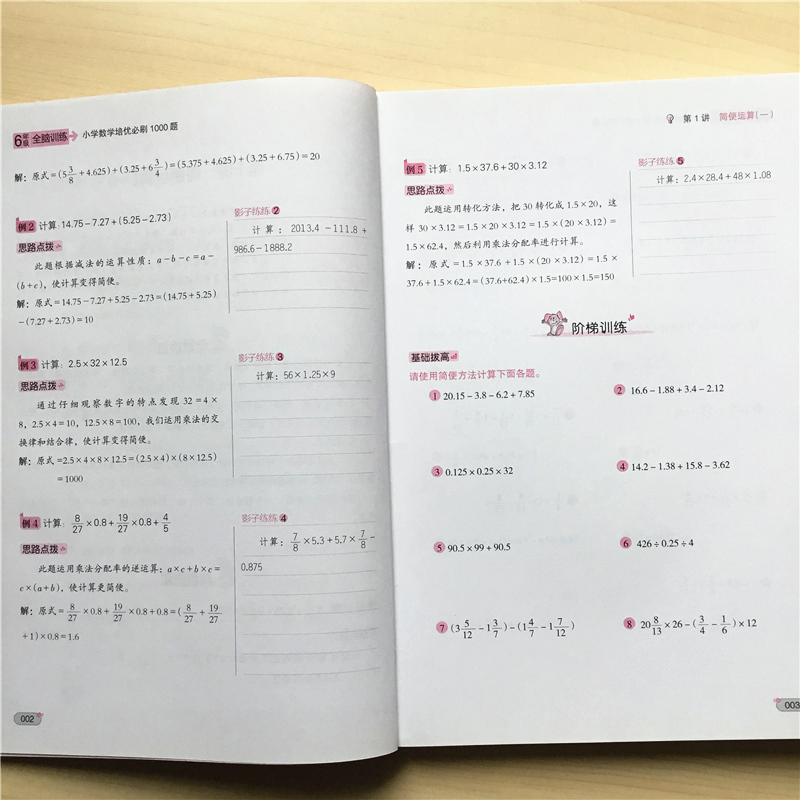 6年级 全脑训练 小学数学培优必刷1000题
解：原式=(5 3/8+4.625)+(3.25+6 3/4)=(5.375+4.625)+(3.25+6.75)=20
例2 计算:14.75-7.27+(5.25-2.73)
思路点拨
此题根据减法的运算性质：a-b-c=a-
(b+c)，使计算变得简便。
解：原式=14.75-7.27+5.25-2.73=(14.75+5.25)
-(7.27+2.73)=10
影子练练2
计算：2013.4-111.8+
986.6-1888.2
例3 计算：2.5×32×12.5
思路点拨
通过仔细观察数字的特点发现32=4×
8，2.5×4=10，12.5×8=100，我们运用乘法的交
换律和结合律，使计算变得简便。
解：原式=2.5×4×8×12.5=(2.5×4)×(8×12.5)
=1000
影子练练3
计算：56×1.25×9
例4 计算：8/27×0.8+19/27×0.8+4/5
思路点拨
此题运用乘法分配率的逆运算：a×c+b×c=
c×(a+b)，使计算更简便。
解：原式=8/27×0.8+19/27×0.8+0.8=(8/27+19/27
+1)×0.8=1.6
影子练练4
计算：7/8×5.3+5.7×7/8-
0.875
002
第1讲 简便运算(一)
例5 计算：1.5×37.6+30×3.12
思路点拨
此题运用转化方法，把30转化成1.5×20，这
样30×3.12=1.5×20×3.12=1.5×(20×3.12)=
1.5×62.4，然后利用乘法分配率进行计算。
解：原式=1.5×37.6+1.5×(20×3.12)=1.5×
37.6+1.5×62.4=(37.6+62.4)×1.5=100×1.5=150
影子练练5
计算：2.4×28.4+48×1.08
阶梯训练
基础拔高
请使用简便方法计算下面各题。
1 20.15-3.8-6.2+7.85
2 16.6-1.88+3.4-2.12
3 0.125×0.25×32
4 14.2-1.38+15.8-3.62
5 90.5×99+90.5
6 426÷0.25÷4
7 (3 5/12-1 3/7)-(1 4/7-1 7/12)
8 20 8/13×26-(3/4-1/6)×12
003